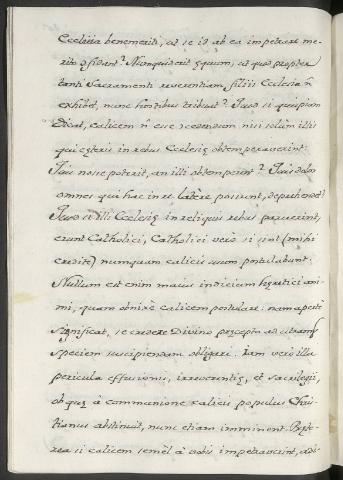 Ecclesia benemeriti, ut se id ab ea impetrare me-
rito ꝯfidant? Nunquid erit ęquum, ut quod propter
tanti Sacramenti reverentiam filiis Ecclesia n̄
exhibet, nunc hostibus tribuat? Quod si quispiam
dicat, calicem n̄ esse ꝯcedendum nisi solùm illis
qui cęteris in rebus Ecclesię obtemperaverint:
Quis nosse poterit, an illi obtemperent? Quis dolos
omnes qui hac in re latêre possunt, deprehendet?
Quod si illi Ecclesię in reliquis rebus paruerint,
erunt Catholici, Catholici verò si sint (mihi
credite) numquam calicis usum postulabunt.
Nullum est enim maius indicium hęretici ani-
mi, quam obnixè calicem postulare: nam apertè
significat, se credere Divino pręcepto ad utramq
speciem suscipiendam obligari. Iam verò illa
pericula effusionis, irreverentię, et sacrilegii,
ob quę à communione calicis populus Chris-
tianus abstinuit, nunc etiam imminent. Pręte-
rea si calicem semèl à vobis impetraverint,